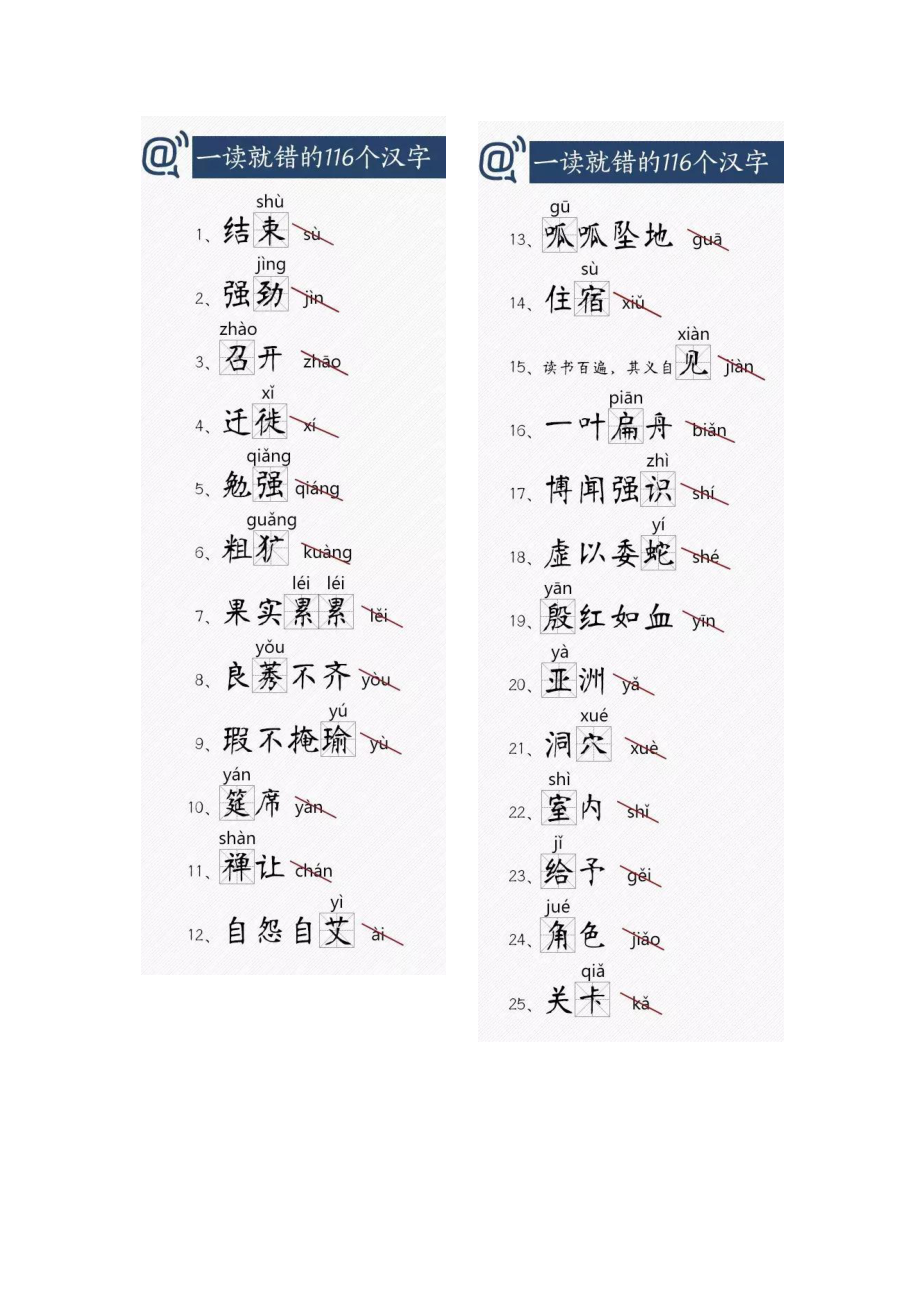 一读就错的116个汉字
shù
1、结束 sù
jìng
2、强劲 jìn
zhào
3、召开 zhāo
xǐ
4、迁徙 xí
qiǎng
5、勉强 qiáng
guǎng
6、粗犷 kuàng
léi léi
7、果实累累 lěi
yǒu
8、良莠不齐 yòu
yú
9、瑕不掩瑜 yù
yán
10、筵席 yàn
shàn
11、禅让 chán
yì
12、自怨自艾 ài
一读就错的116个汉字
gū
13、呱呱坠地 guā
sù
14、住宿 xiǔ
xiàn
15、读书百遍，其义自见 jiàn
piān
16、一叶扁舟 biǎn
zhì
17、博闻强识 shí
yí
18、虚以委蛇 shé
yān
19、殷红如血 yīn
yà
20、亚洲 yǎ
xué
21、洞穴 xuè
shì
22、室内 shǐ
jǐ
23、给予 gěi
jué
24、角色 jiǎo
qiǎ
25、关卡 kǎ